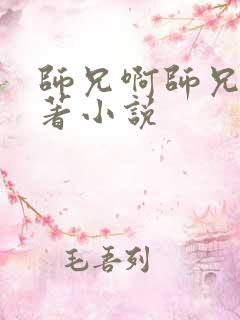 師兄啊師兄
著小説
毛吾列